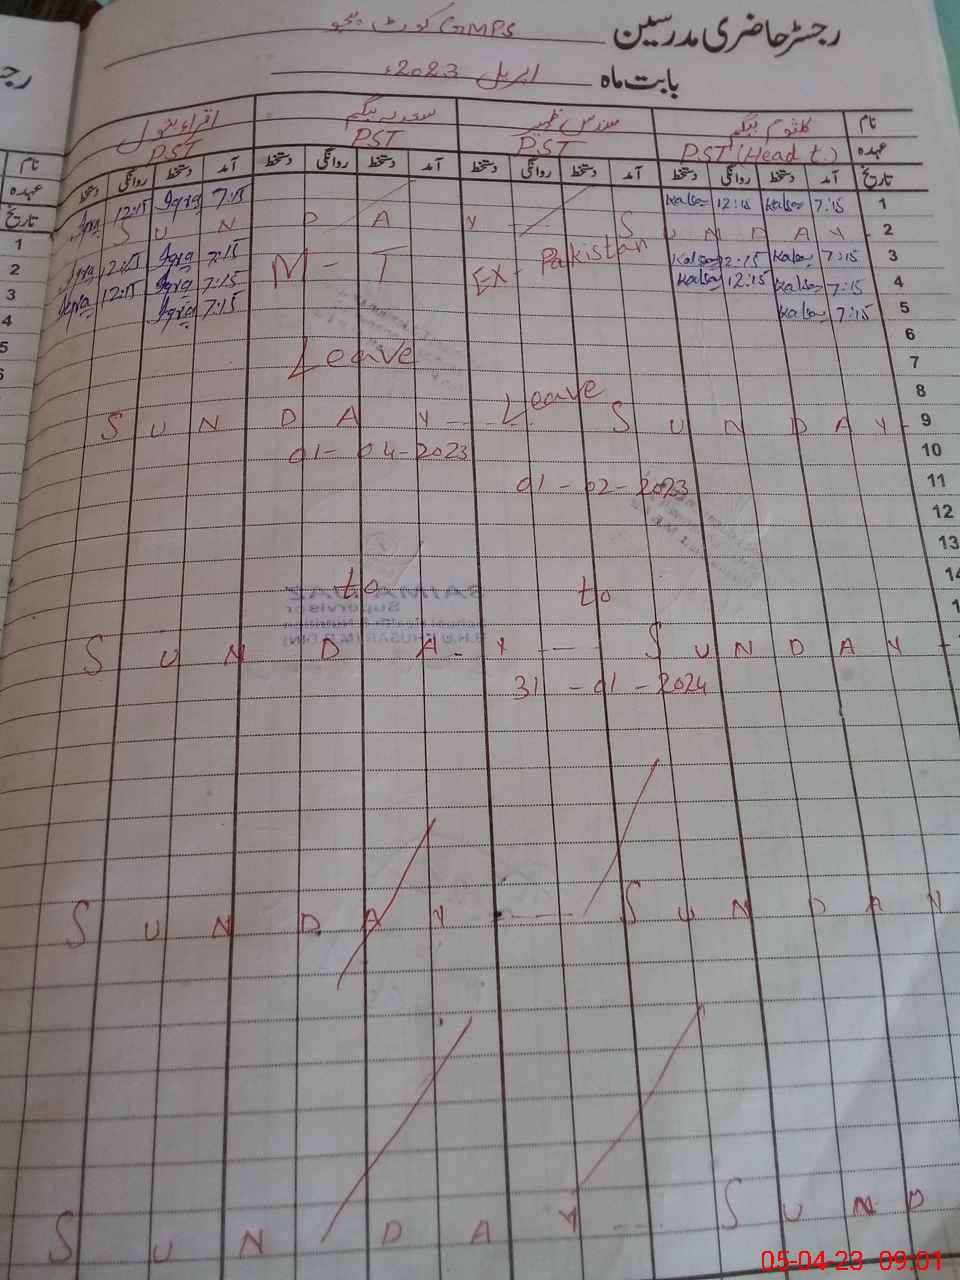 رجسٹر حاضری مدرسین GMPS کوٹ
بابت ماہ اپریل 2023ء
نام کلثوم بیگم سندس ظہیر سعدیہ بیگم اقراء بتول
عہدہ PST (Head t.) PST PST PST
تاریخ آمد دستخط روانگی دستخط آمد دستخط روانگی دستخط آمد دستخط روانگی دستخط آمد دستخط روانگی دستخط
1 7:15 Kalsoo 12:15 Kalsoo 7:15 Iqra 12:15 Iqra
2 S U N D A Y S U N D A Y
3 7:15 Kalsoo 12:15 Kalsoo 7:15 Iqra 12:15 Iqra
EX - Pakistan
M - T
4 7:15 Kalsoo 12:15 Kalsoo 7:15 Iqra 12:15 Iqra
5 7:15 Kalsoo 7:15 Iqra
6
7
Leave
8
Leave
9 S U N D A Y S U N D A Y
10 01 - 04 - 2023
11 01 - 02 - 2023
12
13
14
to to
SAIMA NAZ
Supervisor
S U N D A Y S U N D A Y
31 - 01 - 2024
S U N D A Y S U N D A Y
S U N D A Y S U N D
نام
عہدہ
تاریخ
1
2
3
4
5
05-04-23 09:01